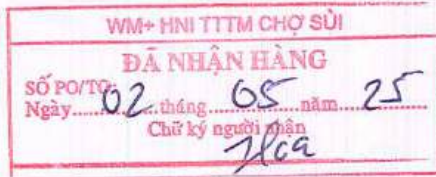 WM+ HNI TTTM CHỢ SỦI
ĐÃ NHẬN HÀNG
SỐ PO/TO:
Ngày.....02.....tháng.....05.....năm.....25
Chữ ký người nhận
Hoa